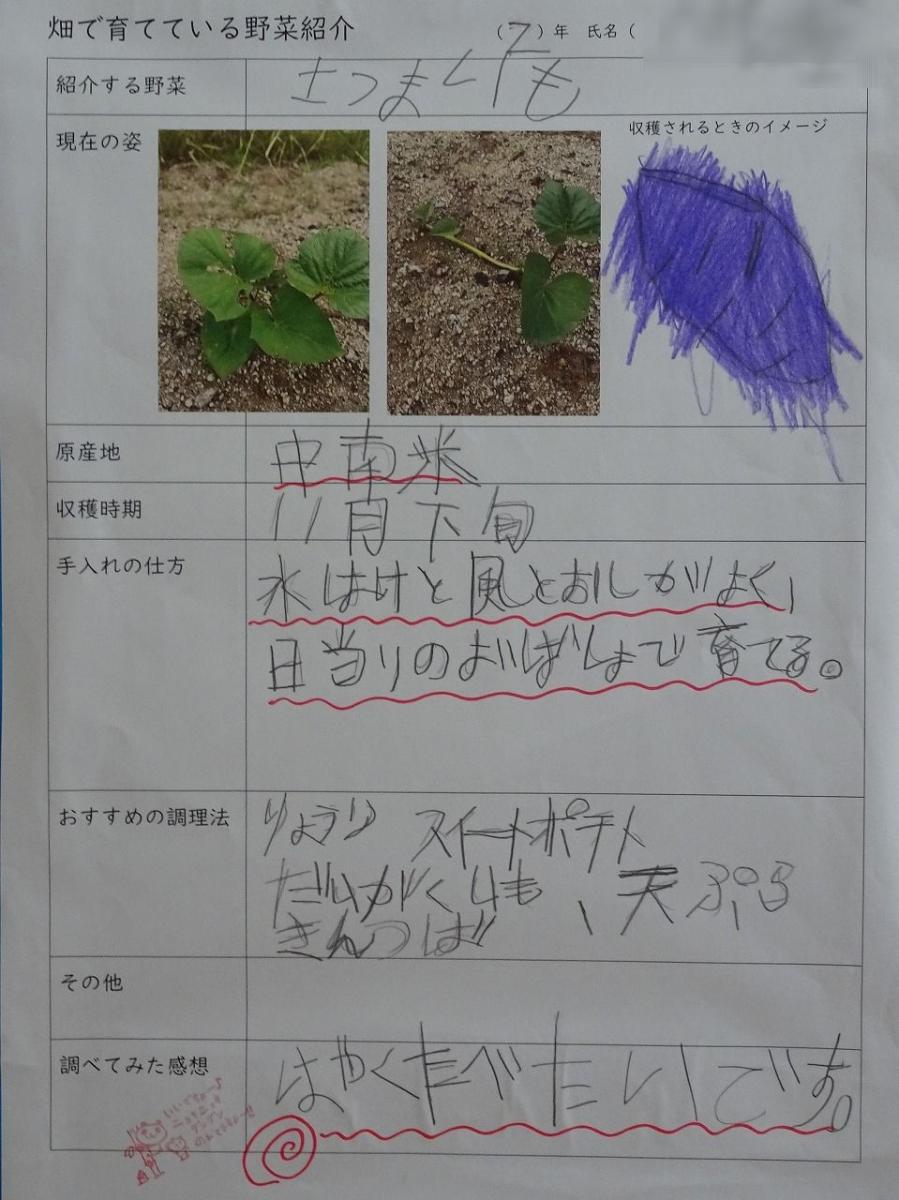 畑で育てている野菜紹介
(7)年 氏名(
紹介する野菜
さつまいも
現在の姿
収穫されるときのイメージ
原産地
中南米
収穫時期
11月下旬
手入れの仕方
水はけと風とおしがよく、
日当りのよいばしょで育てる。
おすすめの調理法
りょうり スイートポテト
だいがくいも、天ぷら
きんつば
その他
調べてみた感想
はやくたべたいです。